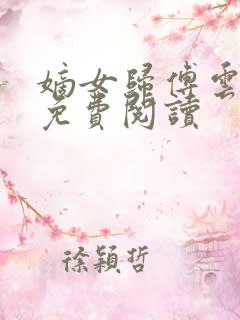 嫡女歸傅雲
免費閱讀
徐穎哲